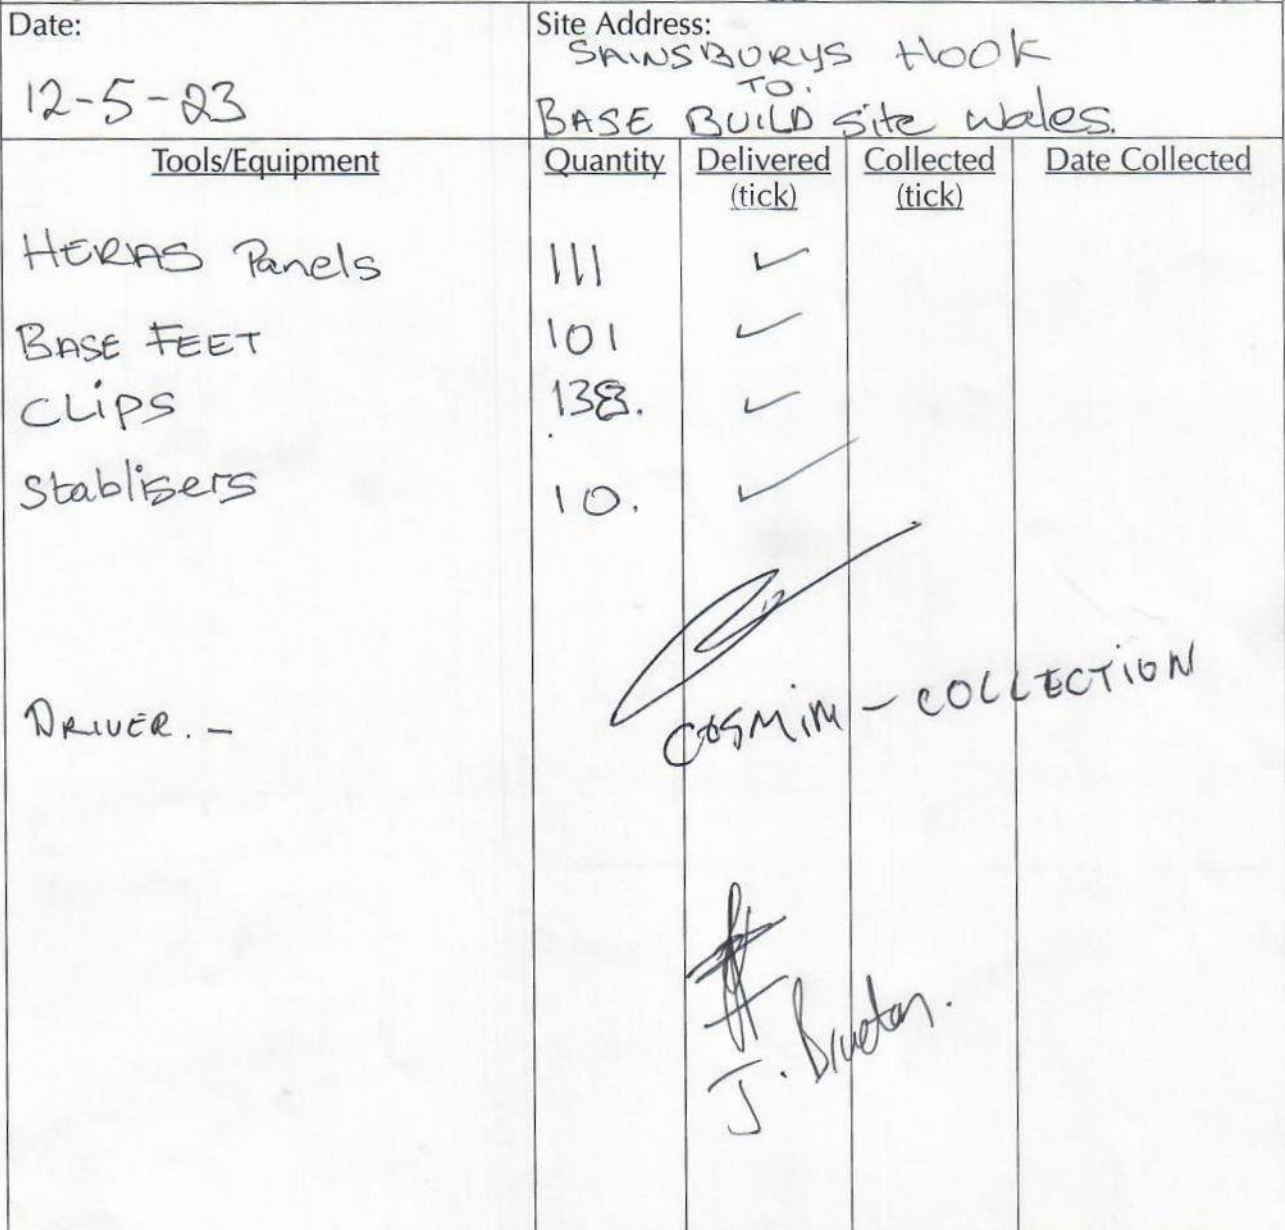 Date:
12-5-23
Site Address:
SAINSBURYS HOOK
TO.
BASE BUILD site Wales.
Tools/Equipment Quantity Delivered (tick) Collected (tick) Date Collected
HERAS Panels 111 ✓
BASE FEET 101 ✓
CLiPS 138. ✓
Stablisers 10. ✓
DRIVER. -
COSMiM - COLLECTION
J.